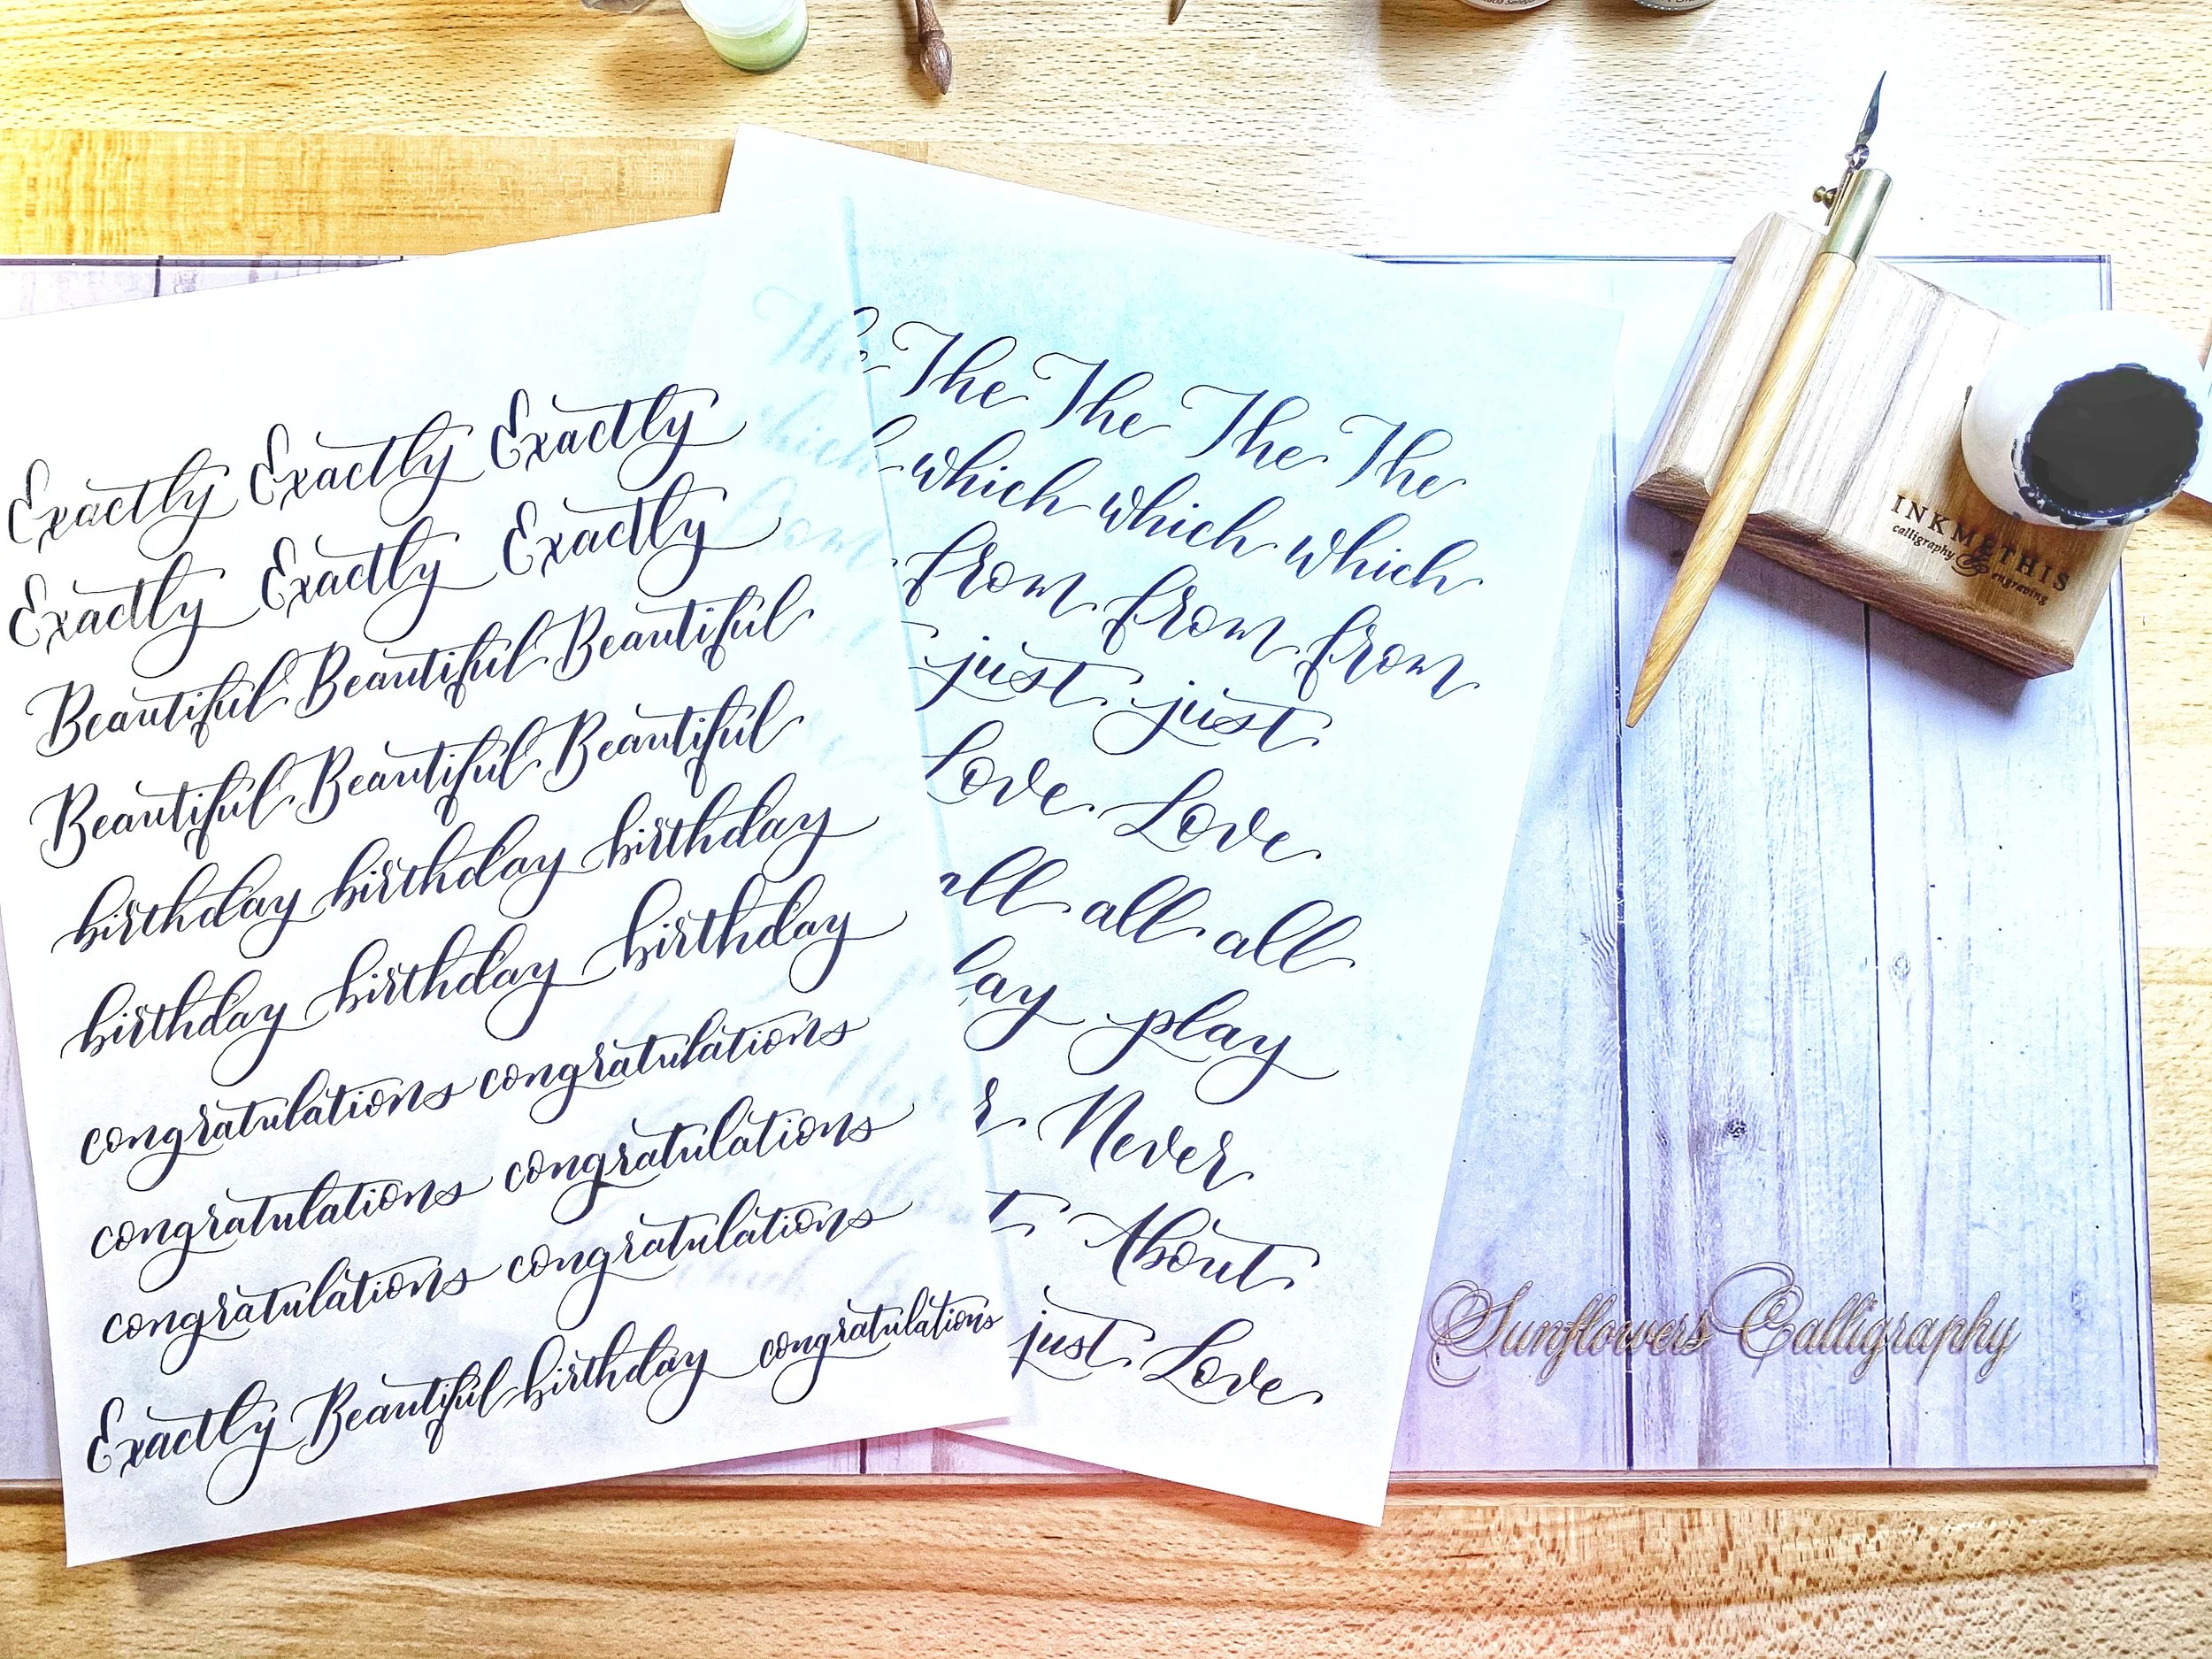 Exactly Exactly Exactly
Exactly Exactly Exactly
Beautiful Beautiful Beautiful
Beautiful Beautiful Beautiful
birthday birthday birthday
birthday birthday birthday
congratulations congratulations
congratulations congratulations
congratulations congratulations
Exactly Beautiful birthday congratulations
The The The The
which which which
from from from
just just
Love Love
all all all
ay play
Never
About
just Love
INKMETHIS
calligraphy & engraving
Sunflowers Calligraphy